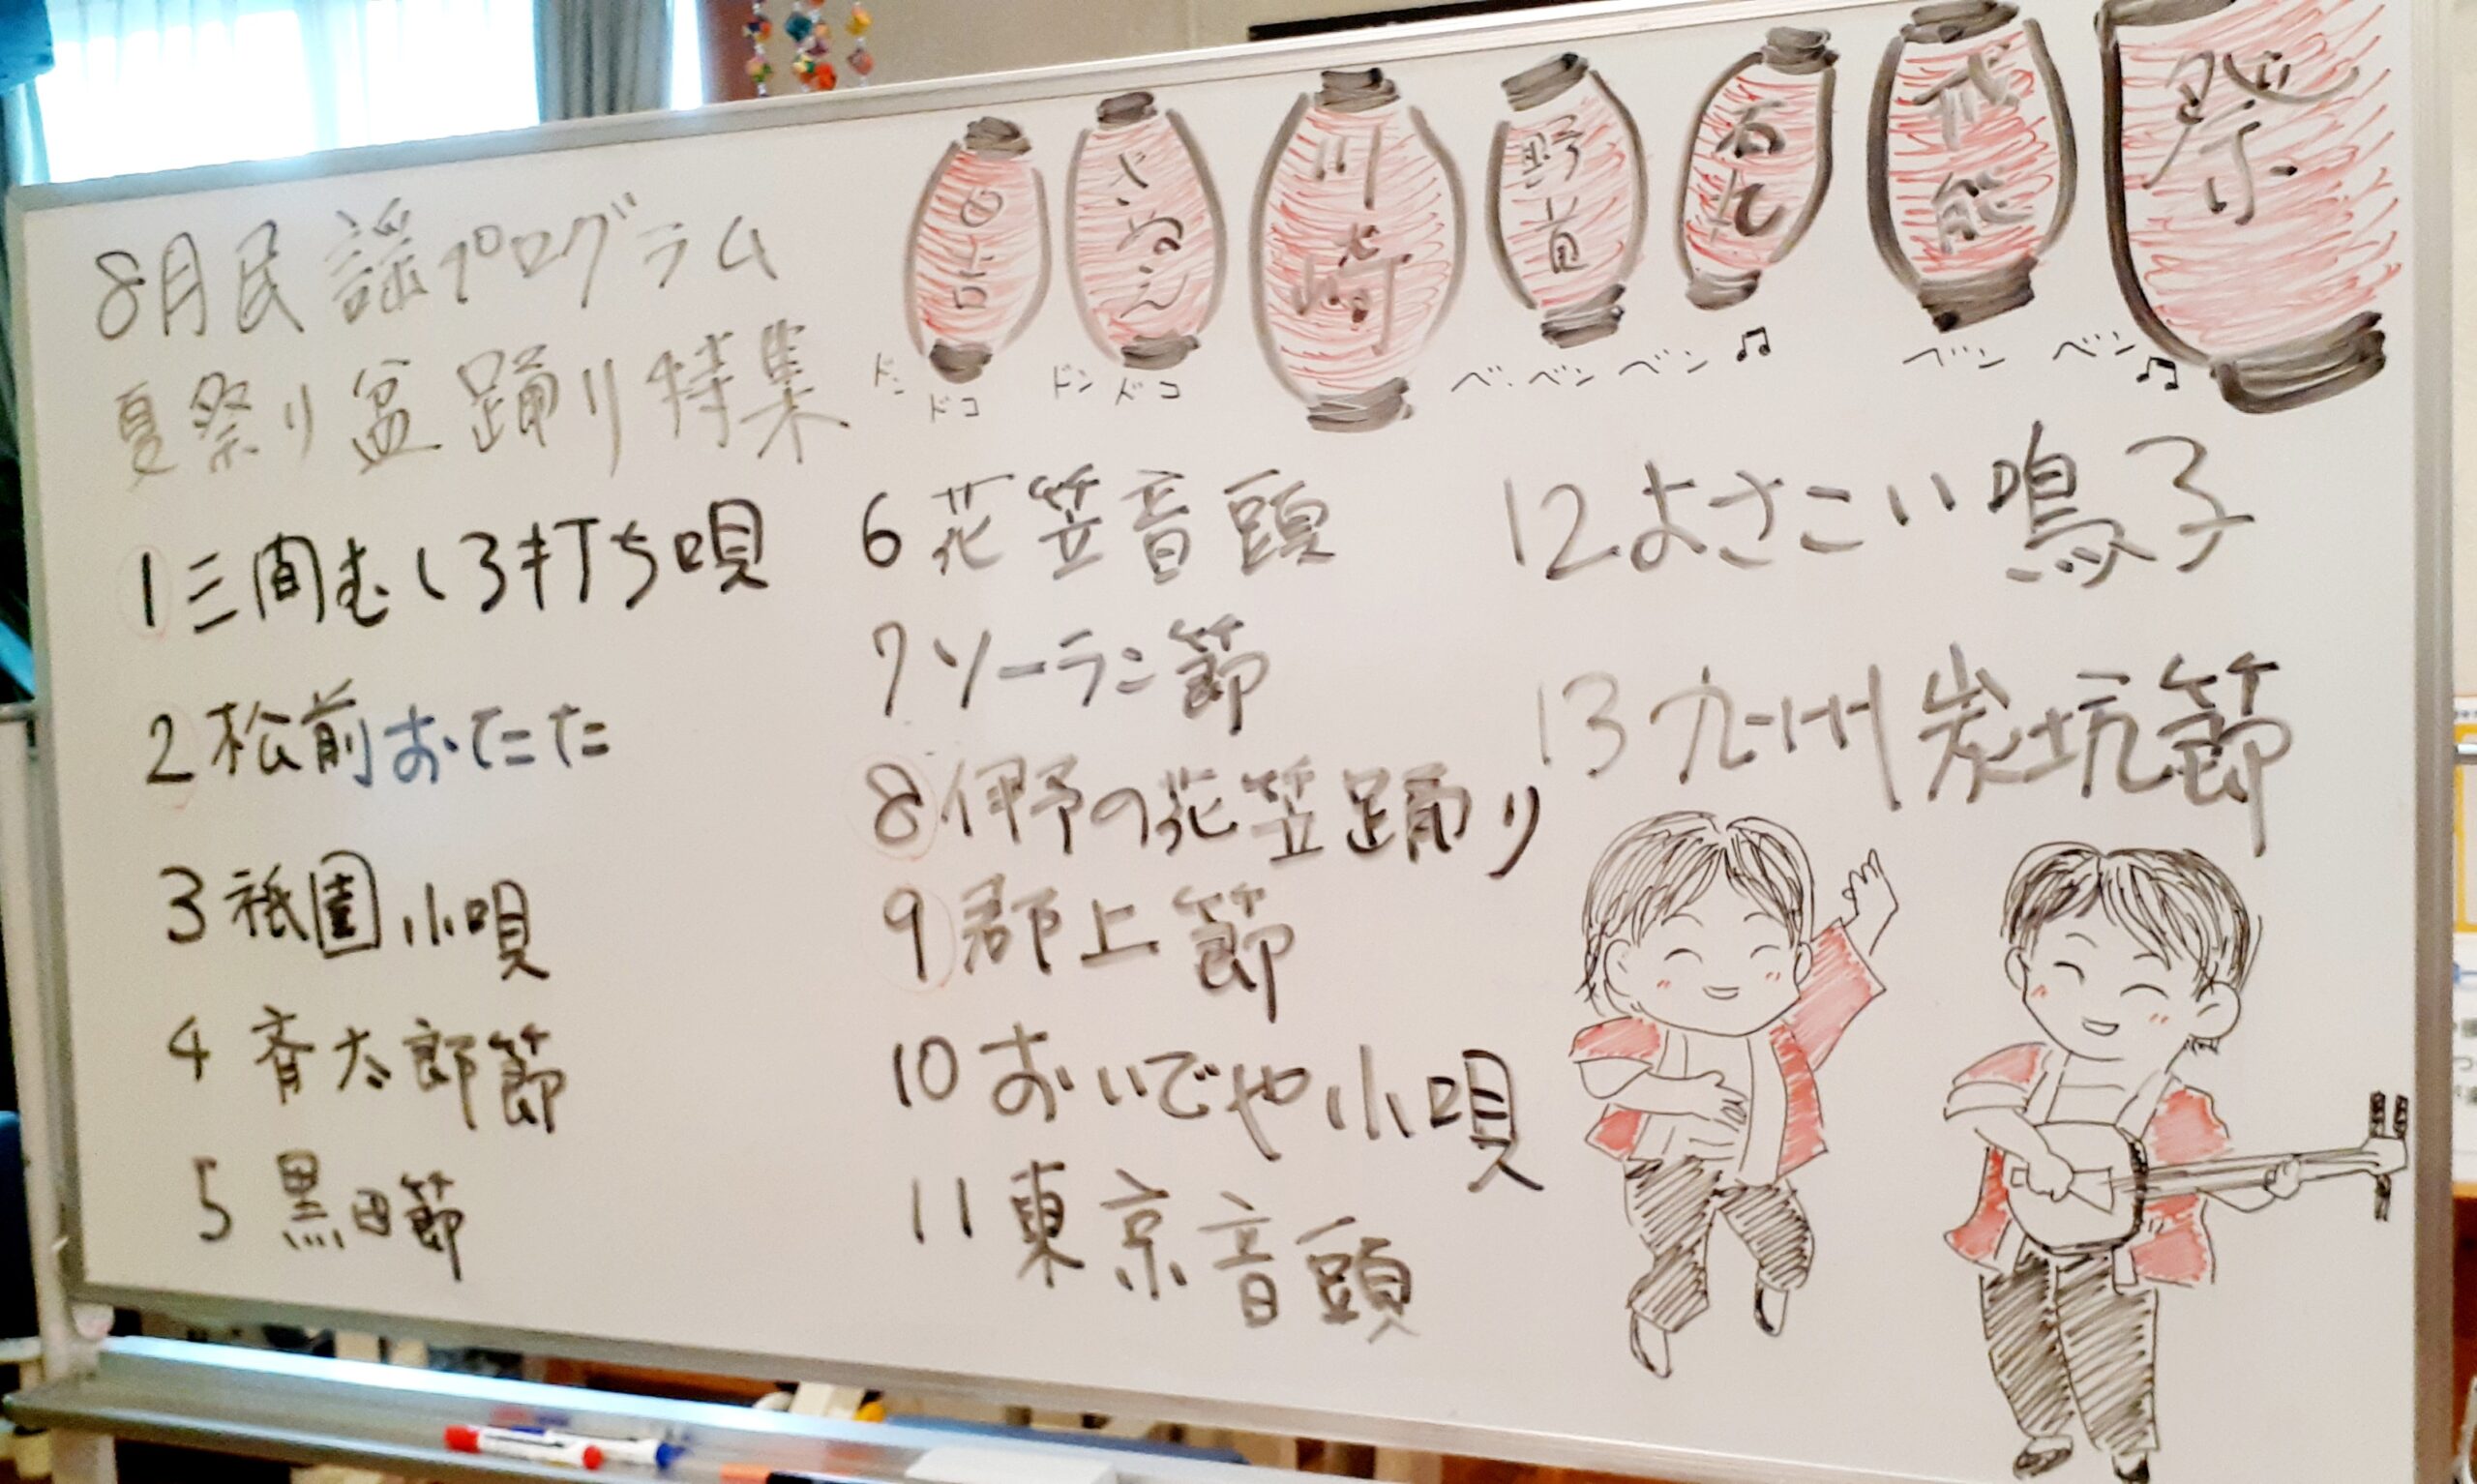 8月民謡プログラム
夏祭り盆踊り特集
さぬえ
川崎
野首
祭
ドコ
ドン ドコ
ベンベン ベン♫
ベン ベン♫
1 三間むしろ打ち唄
2 松前おたた
3 祇園小唄
4 斉太郎節
5 黒田節
6 花笠音頭
7 ソーラン節
8 伊予の花笠踊り
9 郡上節
10 おいでや小唄
11 東京音頭
12 よさこい鳴子
13 九州炭坑節